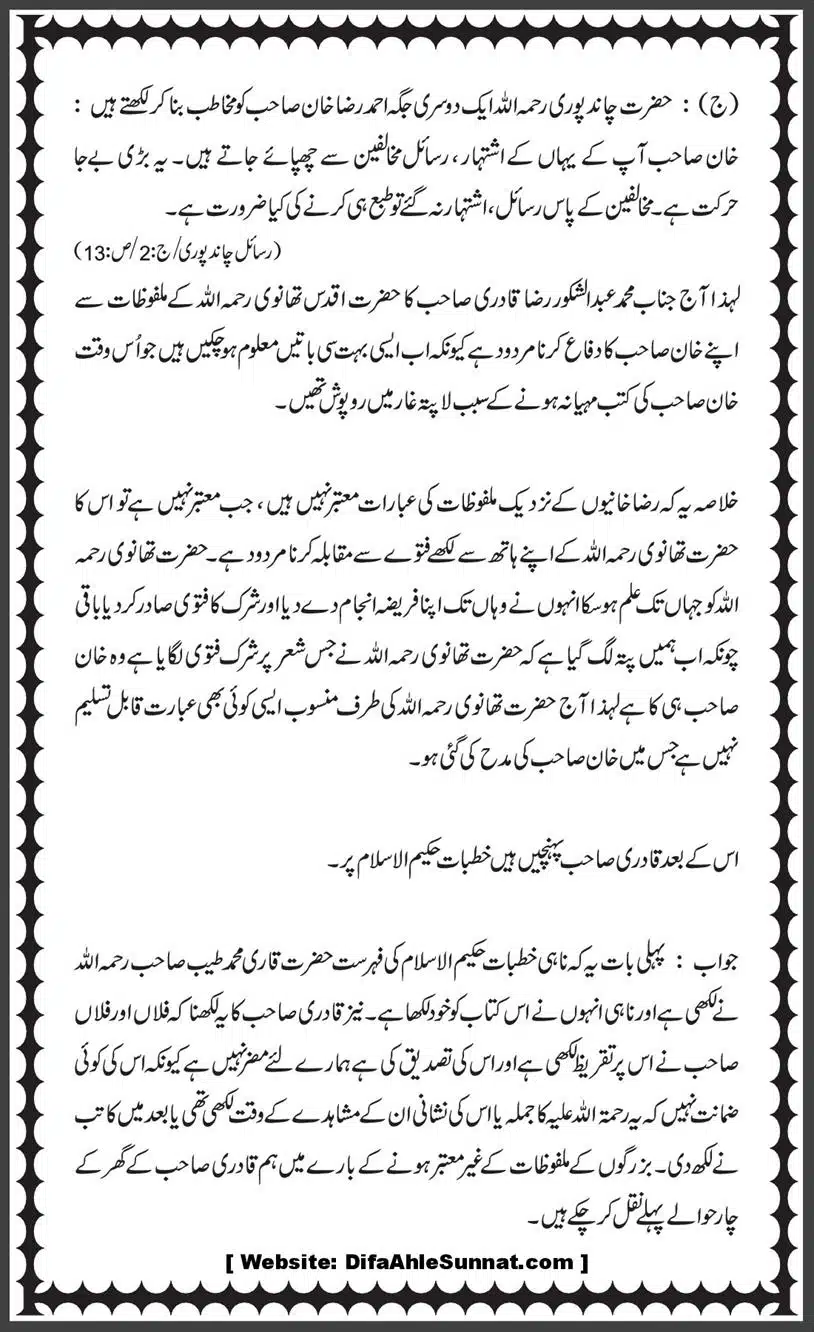 (ج) : حضرت چاند پوری رحمہ اللہ ایک دوسری جگہ احمد رضا خان صاحب کو مخاطب بنا کر لکھتے ہیں :
خان صاحب آپ کے یہاں کے اشتہار، رسائل مخالفین سے چھپائے جاتے ہیں۔ یہ بڑی بے جا
حرکت ہے۔ مخالفین کے پاس رسائل، اشتہار نہ گئے تو طبع ہی کرنے کی کیا ضرورت ہے۔
(رسائل چاند پوری/ج:2/ص:13)
لہذا آج جناب محمد عبد الشکور رضا قادری صاحب کا حضرت اقدس تھانوی رحمہ اللہ کے ملفوظات سے
اپنے خان صاحب کا دفاع کرنا مردود ہے کیونکہ اب ایسی بہت سی باتیں معلوم ہو چکیں ہیں جو اُس وقت
خان صاحب کی کتب مہیا نہ ہونے کے سبب لاپتہ غار میں روپوش تھیں۔
خلاصہ یہ کہ رضا خانیوں کے نزدیک ملفوظات کی عبارات معتبر نہیں ہیں، جب معتبر نہیں ہے تو اس کا
حضرت تھانوی رحمہ اللہ کے اپنے ہاتھ سے لکھے فتوے سے مقابلہ کرنا مردود ہے۔ حضرت تھانوی رحمہ
اللہ کو جہاں تک علم ہو سکا انہوں نے وہاں تک اپنا فریضہ انجام دے دیا اور شرک کا فتوی صادر کر دیا باقی
چونکہ اب ہمیں پتہ لگ گیا ہے کہ حضرت تھانوی رحمہ اللہ نے جس شعر پر شرک فتوی لگایا ہے وہ خان
صاحب ہی کا ہے لہذا آج حضرت تھانوی رحمہ اللہ کی طرف منسوب ایسی کوئی بھی عبارت قابل تسلیم
نہیں ہے جس میں خان صاحب کی مدح کی گئی ہو۔
اس کے بعد قادری صاحب پہنچیں ہیں خطبات حکیم الاسلام پر۔
جواب : پہلی بات یہ کہ نا ہی خطبات حکیم الاسلام کی فہرست حضرت قاری محمد طیب صاحب رحمہ اللہ
نے لکھی ہے اور نا ہی انہوں نے اس کتاب کو خود لکھا ہے۔ نیز قادری صاحب کا یہ لکھنا کہ فلاں اور فلاں
صاحب نے اس پر تقریظ لکھی ہے اور اس کی تصدیق کی ہے ہمارے لئے مضر نہیں ہے کیونکہ اس کی کوئی
ضمانت نہیں کہ یہ رحمۃ اللہ علیہ کا جملہ یا اس کی نشانی ان کے مشاہدے کے وقت لکھی تھی یا بعد میں کاتب
نے لکھ دی۔ بزرگوں کے ملفوظات کے غیر معتبر ہونے کے بارے میں ہم قادری صاحب کے گھر کے
چار حوالے پہلے نقل کر چکے ہیں۔
[ Website: DifaAhleSunnat.com ]